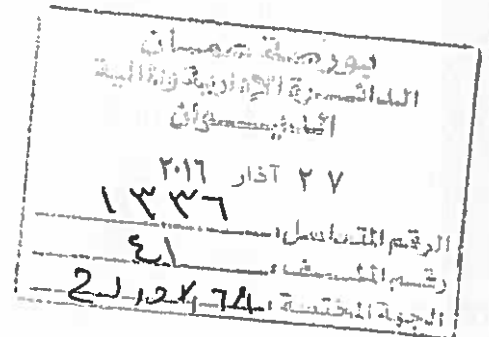 بورصة عمان
الدائرة الإدارية والمالية
الديوان
٢٧ آذار ٢٠١٦
الرقم المتسلسل: ١٣٣٦
رقم الملف: ٤١
الجهة المختصة: